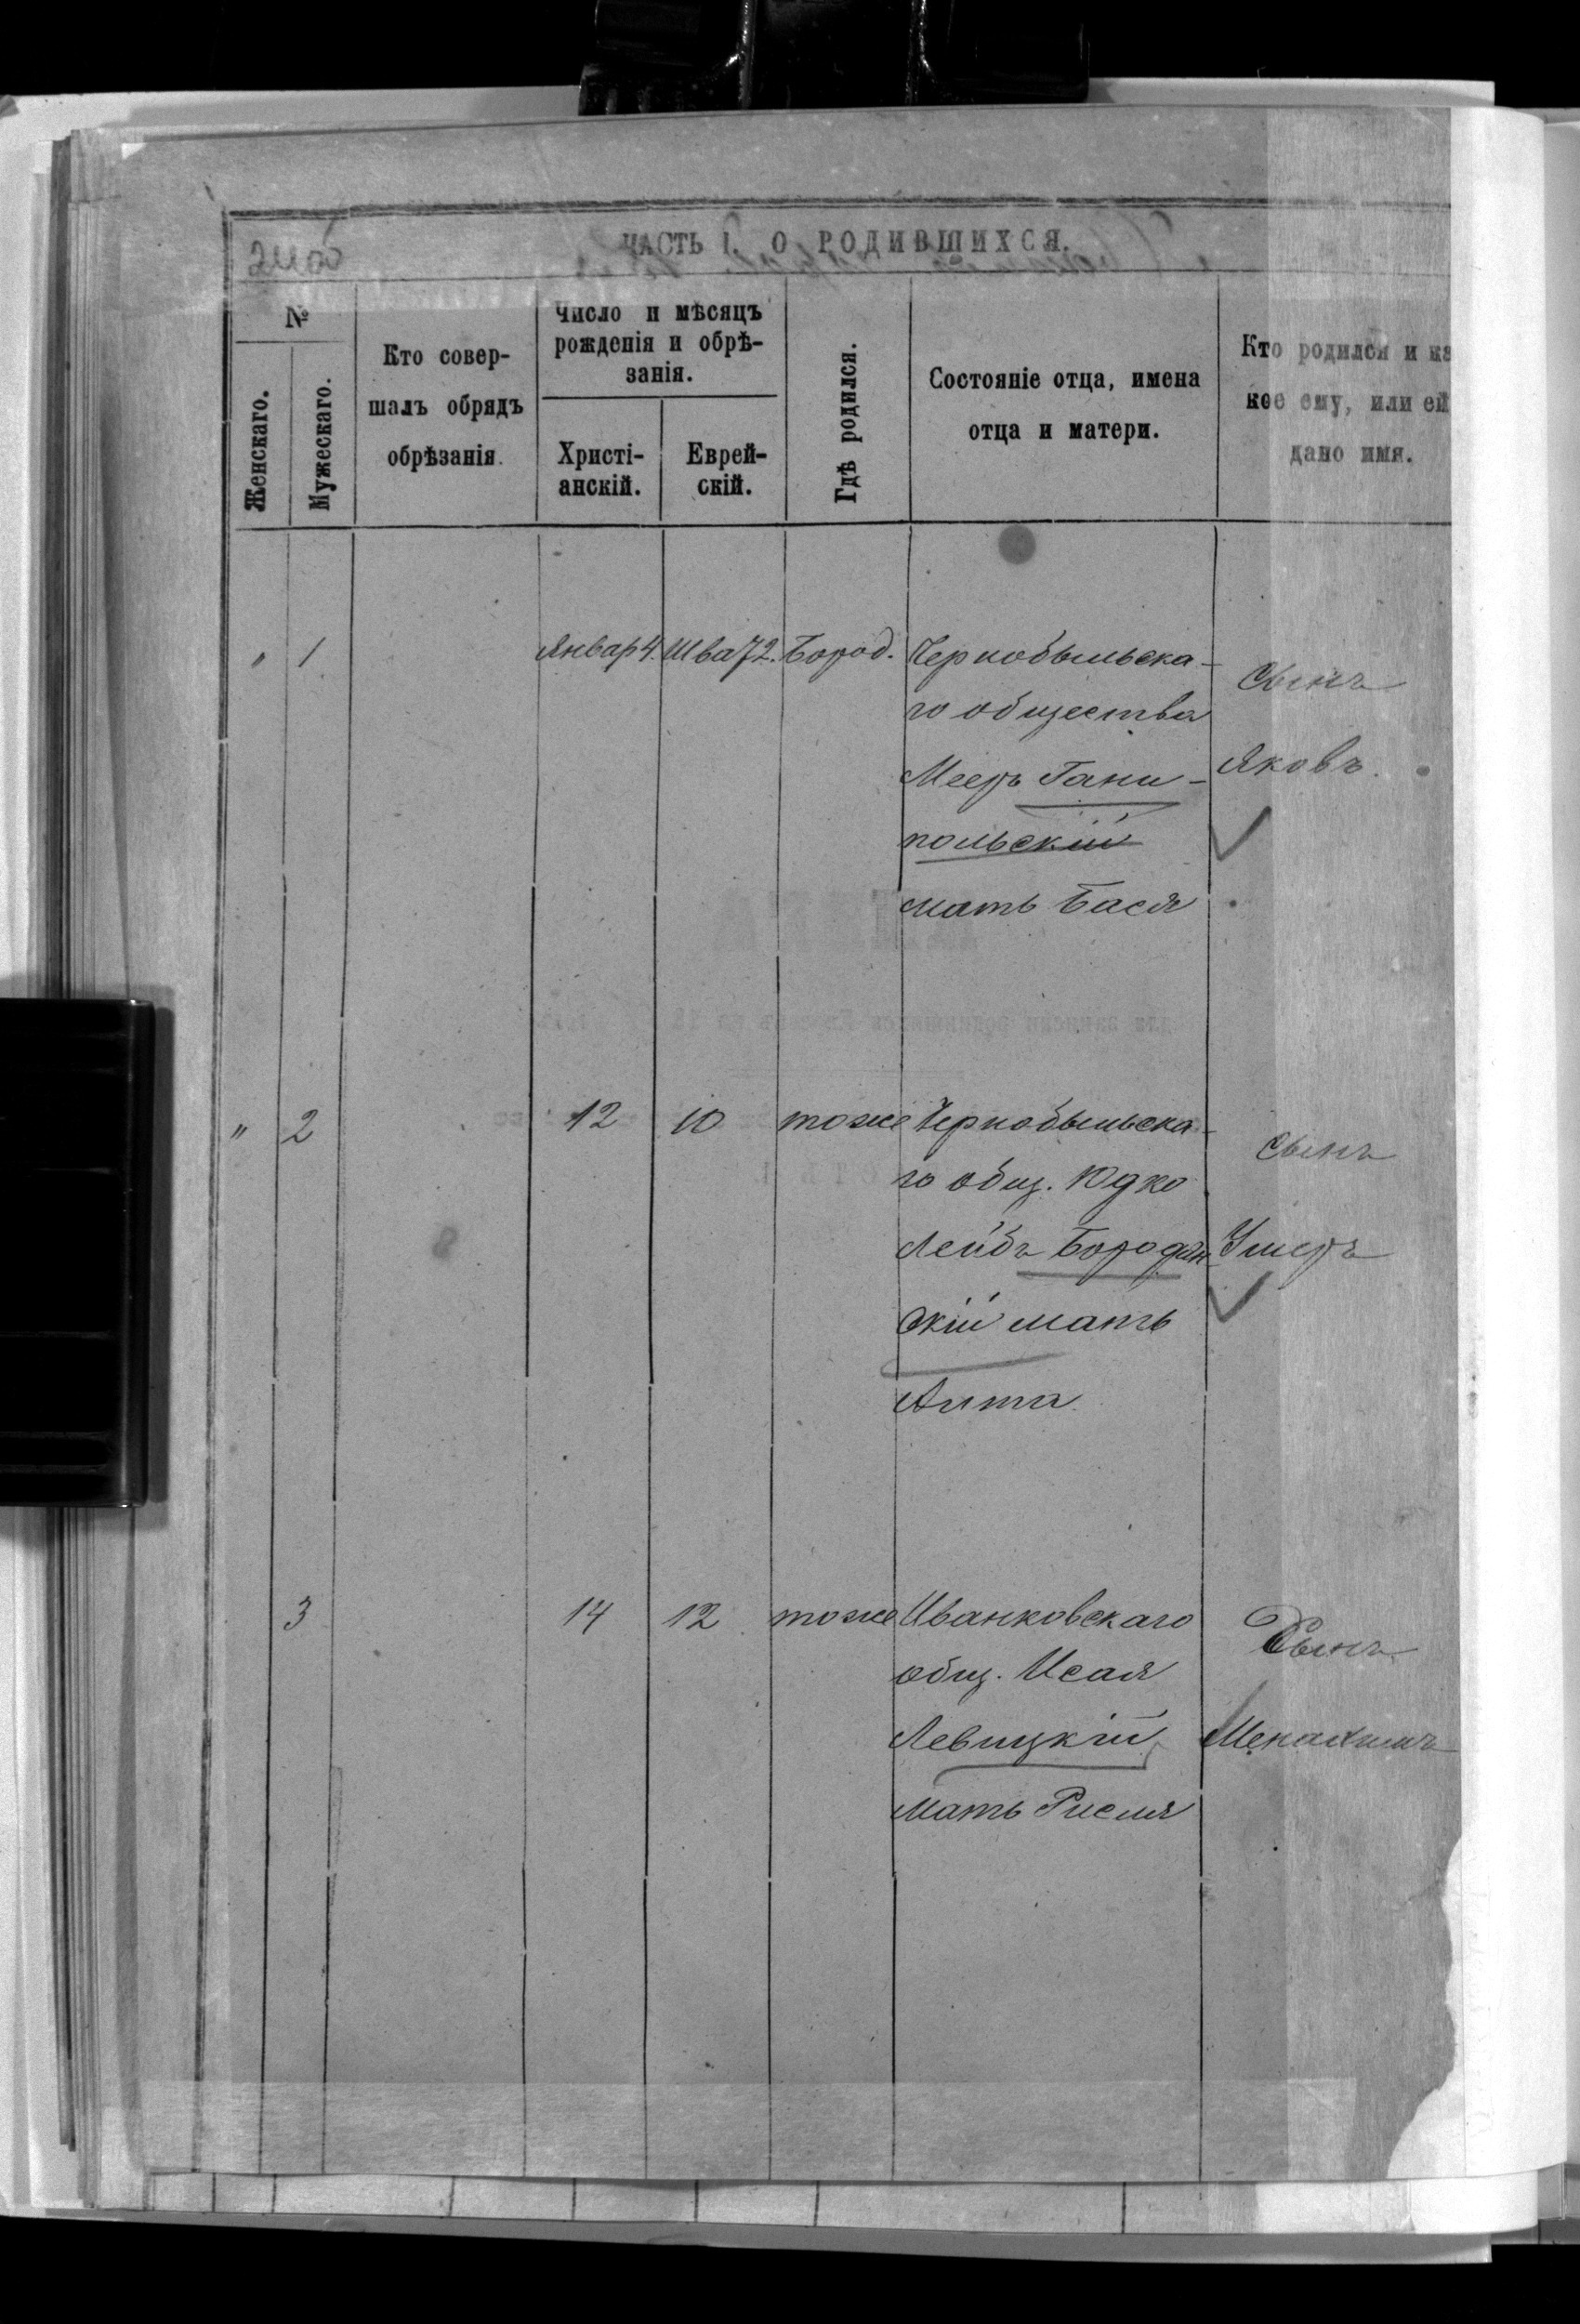 ЧАСТЬ I. О РОДИВШИХСЯ.
№
Женскаго.
Мужескаго.
Кто совер-
шалъ обрядъ
обрѣзанія.
Число и мѣсяцъ
рожденія и обрѣ-
занія.
Христі-
анскій.
Еврей-
скій.
Гдѣ родился.
Состояніе отца, имена
отца и матери.
Кто родился и ка
кое ему, или ей
дано имя.
" 1 Январ 4. Шва72. Бород. Чернобыльска-
го общества
Меерь Гани-
польскій
мать Бася
Сынъ
Яковъ.
" 2 12 10 тоже Чернобыльска-
го общ. Юдко
Лейбъ Бородян-
скій мать
Алта.
Сынъ
Ушеръ
3 14 12 тоже Иванковскаго
общ. Исая
Левицкій
мать Рисля
Сынъ
Менахимъ